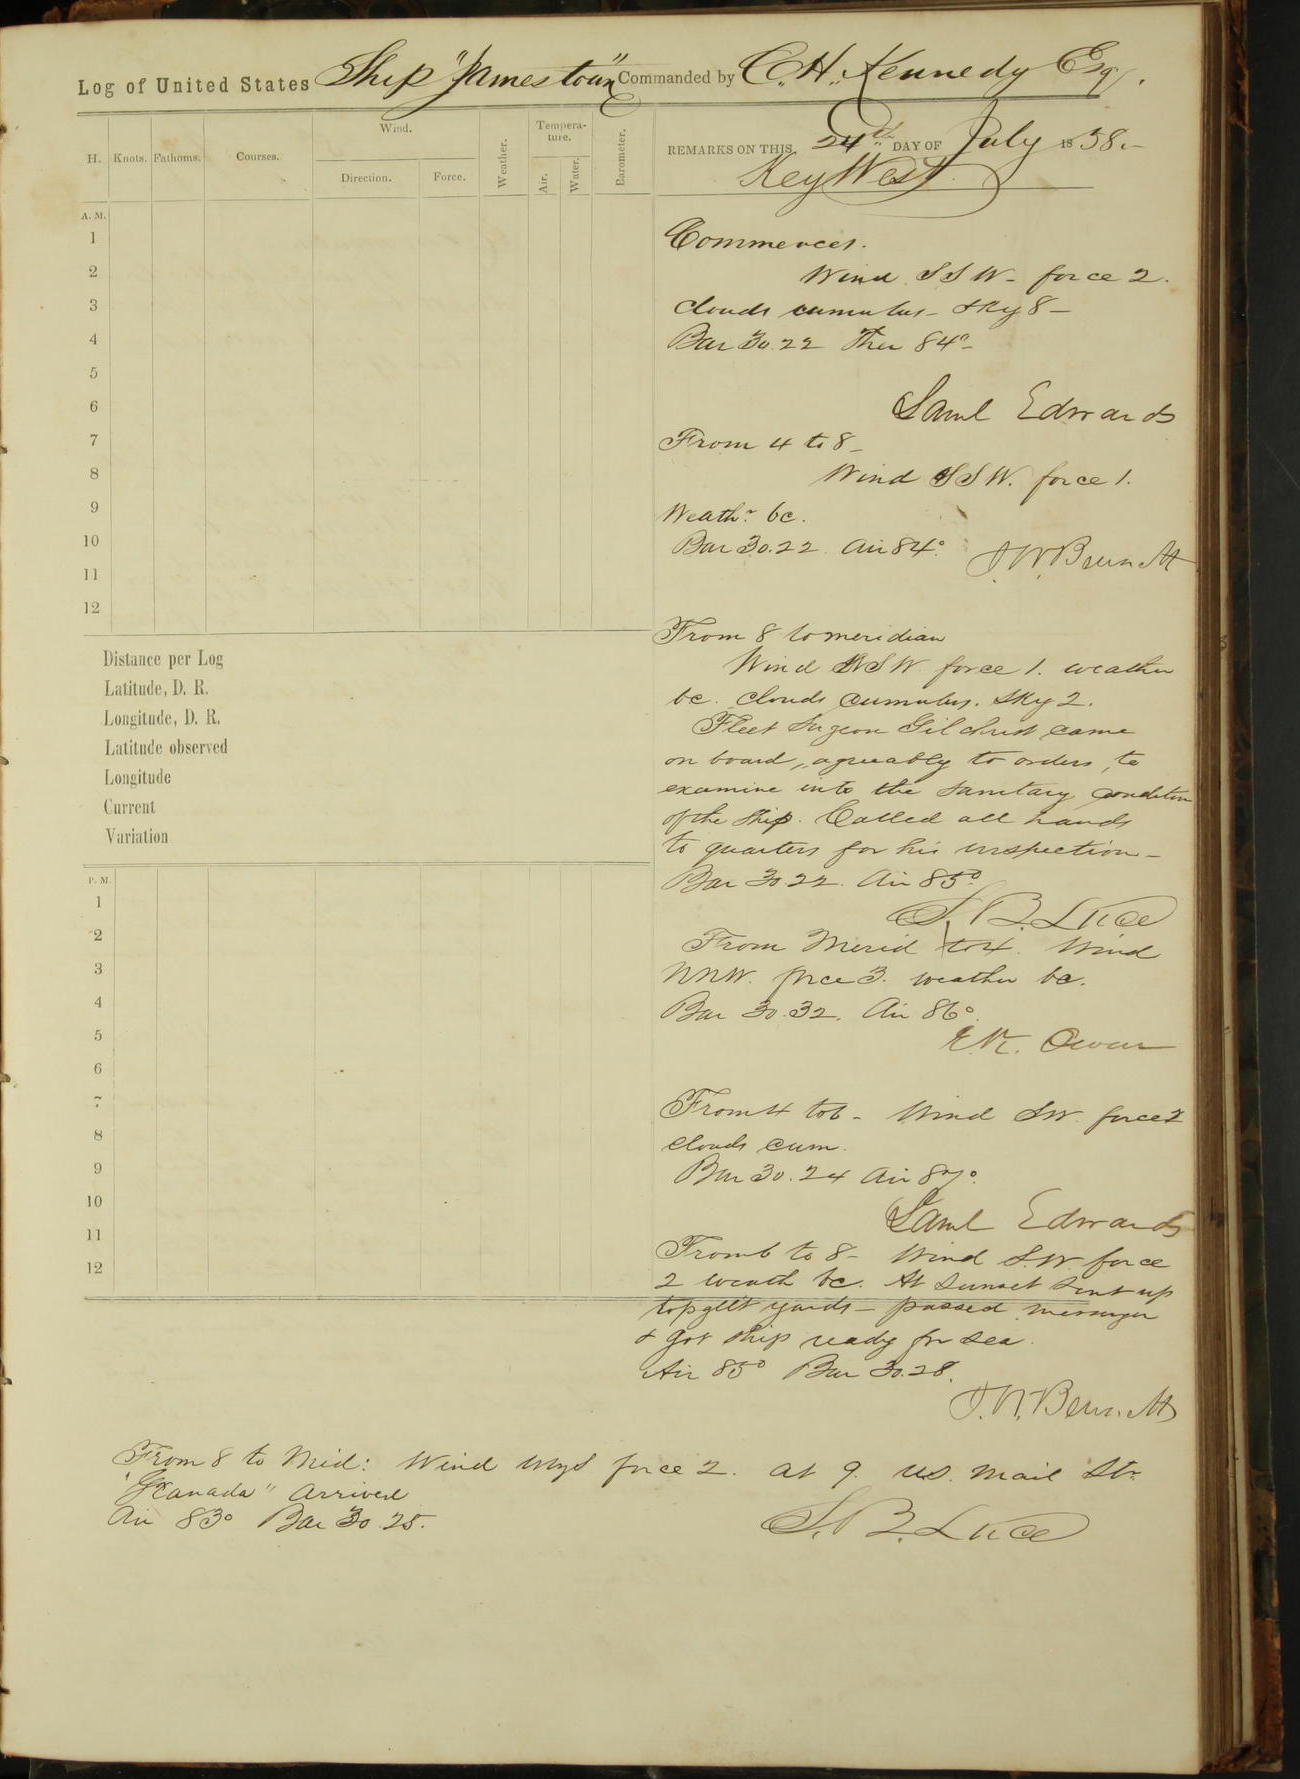 Log of United States Ship "Jamestown" Commanded by C. H. Kennedy Esq.
H. Knots. Fathoms. Courses. Wind. Direction. Force. Weather. Tempera-ture. Air. Water. Barometer.
REMARKS ON THIS 24th DAY OF July 1858.
Key West.
A. M.
1
2
3
4
5
6
7
8
9
10
11
12
Distance per Log
Latitude, D. R.
Longitude, D. R.
Latitude observed
Longitude
Current
Variation
P. M.
1
2
3
4
5
6
7
8
9
10
11
12
Commences.
Wind SSW - force 2.
clouds cumulus - sky 8 -
Bar 30.22 Ther 84° -
Saml Edwards
From 4 to 8 -
Wind SSW. force 1.
Weathr. bc.
Bar 30.22 Air 84°.
J. W. Bennett
From 8 to meridian
Wind WSW force 1. weather
bc. clouds cumulus. sky 2.
Fleet Surgeon Gilchrist came
on board, agreeably to orders, to
examine into the sanitary condition
of the ship. Called all hands
to quarters for his inspection -
Bar 30.22. Air 85°.
S. B. Luce
From Merid to 4. Wind
NNW. force 3. weather bc.
Bar 30.32. Air 86°.
E. K. Owen
From 4 to 6 - Wind SW. force 2
clouds cum.
Bar 30.24 Air 87°.
Saml Edwards
From 6 to 8 - Wind S.W. force
2 weath bc. At sunset sent up
topgllt yards - passed messenger
& got ship ready for sea.
Air 85° Bar 30.28.
J. W. Bennett
From 8 to Mid: Wind force 2. at 9. U.S. Mail Str.
"Granada" arrived
Air 83° Bar 30.25.
S. B. Luce